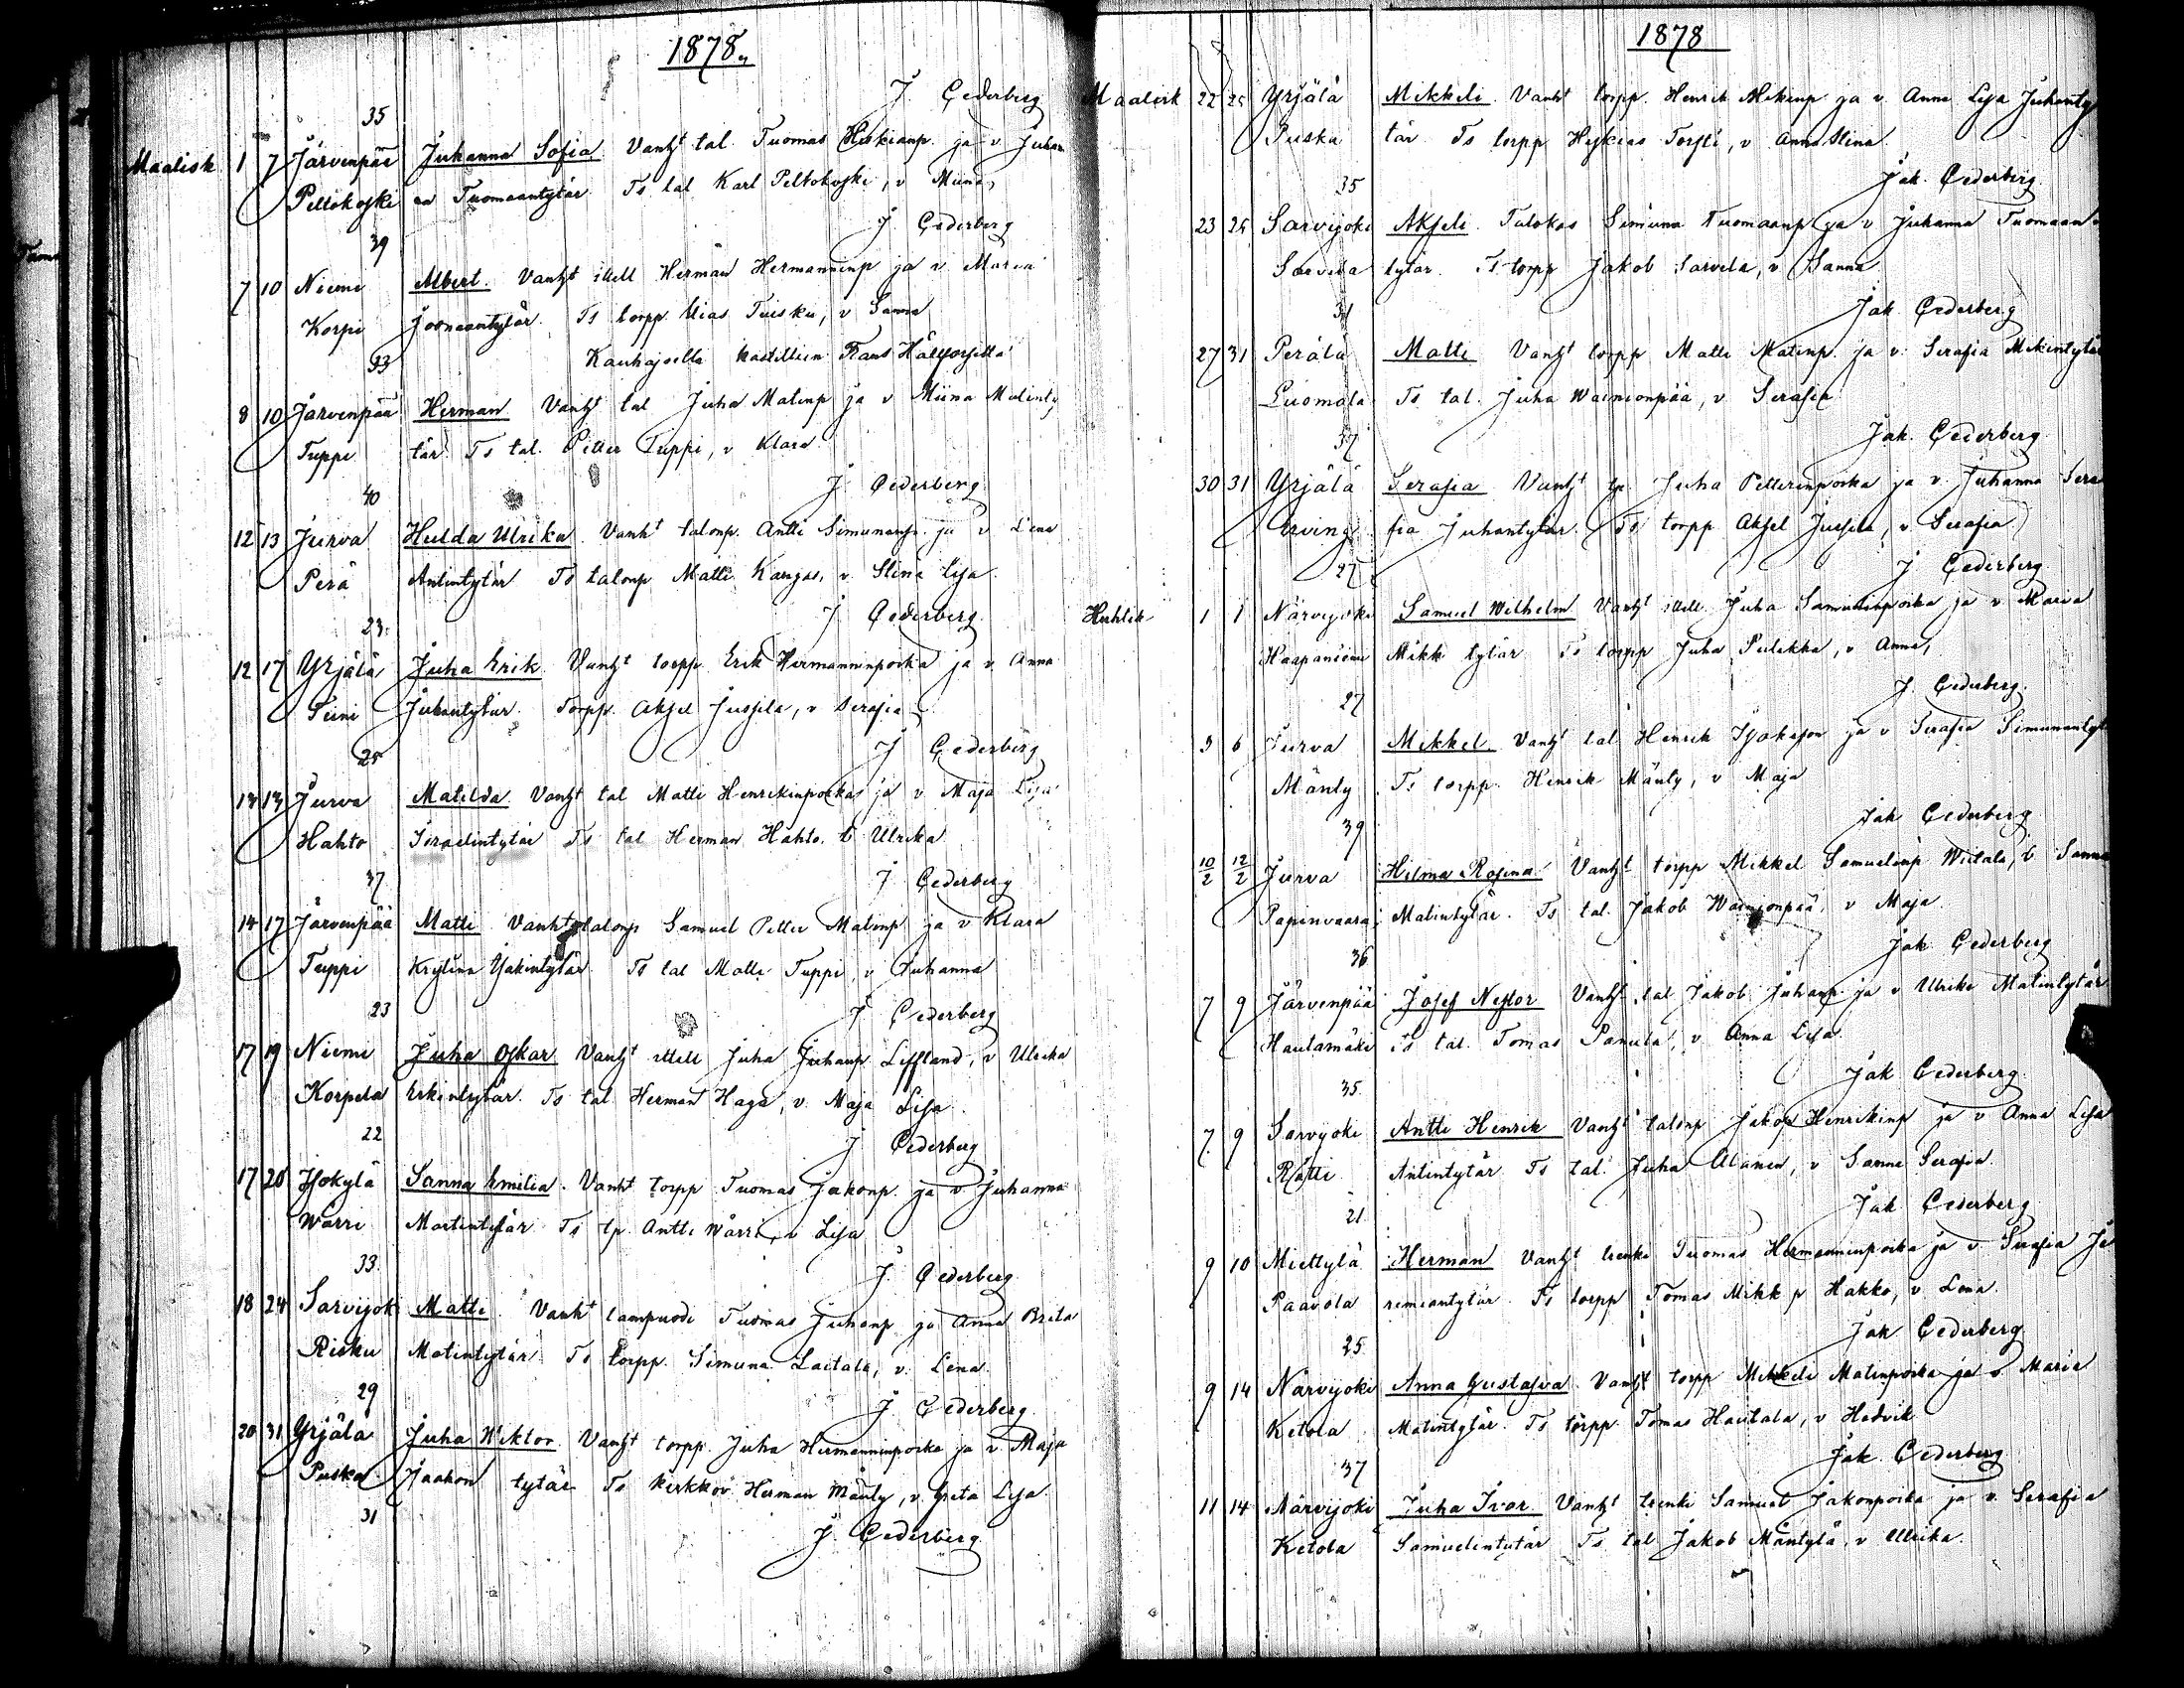 1878
J Cederberg
35
Maalisk 1 7 Järvenpää Juhanna Sofia Vanht tal. Tuomas Heskianp ja v Juhan
Peltokoski na Tuomaantytär Ts tal Karl Peltokoski, v Miina
J Cederberg
39
7 10 Niemi Albert Vanht itell Herman Hermanninp ja v Maria
Korpi Joonaantytär. Ts torpp. Elias Tuisku, v Sanna
33 Kauhajoella Frans
8 10 Järvenpää Herman Vanht tal Juha Matinp ja v Miina Matinty
Tuppi tär Ts tal. Petter Tuppi, v Klara
J Cederberg
40
12 13 Jurva Hulda Ulrika Vanht talonp. Antti Simunanp. ja v Lena
Perä Antintytär Ts talonp Matti Kangas, v. Stina Lisa
J Cederberg
23
12 17 Yrjälä Juha Erik Vanht torpp Erik Hermanninpoika ja v Anna
Tiini Juhantytär. Torpp. Aksel Jussila, v Serafia
J Cederberg
25
13 13 Jurva Matilda Vanht tal Matti Henrikinpoika ja v Maja Lisa
Hahto Israelintytär Ts tal Herman Hahto. v Ulrika
J Cederberg
37
14 17 Järvenpää Matti Vanht talonp Samuel Petter Matinp ja v Klara
Tuppi Kristina Ts tal Matti Tuppi, v Juhanna
J Cederberg
23
17 19 Niemi Juha Oskar Vanht itell Juha Juhanp Liffland, v Ulrika
Korpela Erkintytär. Ts tal Herman Haga, v. Maja Lisa
J Cederberg
22
17 20 Hokylä Sanna Emilia. Vanht torpp Tuomas Jakonp. ja v Juhanna
Wärri Martintytär Ts tp. Antti Wärri, v Lisa
J. Cederberg
33.
18 24 Sarvijok Matti. Vanht lampuodi Tuomas Juhanp ja Anna Brita
Risku Matintytär Ts torpp. Simuna Laitala, v. Lena
J. Cederberg
29
20 31 Yrjälä Juha Wiktor Vanht torpp. Juha Hermanninpoika ja v Maja
Puska Jaakon tytär Ts kirkkov. Herman Mänty, v. Greta Lisa
J. Cederberg
31
1878
Maalisk 22 25 Yrjälä Mikkeli. Vanht torpp. Henrik Mikinp ja v Anna Lisa Juhanty
Puska tär Ts torpp Heskias Torsti, v Anna Stina
Jak. Cederberg
35
23 25 Sarvijoki Akseli. Talokas Simuna Tuomaanp ja v Juhanna Tuomaan
Sarvela tytär Ts. torpp Jakob Sarvela, v Sanna
Jak Cederberg
31
27 31 Perälä Matti Vanht torpp Matti Matinp ja v. Serafia Mikintytär
Luomala Ts tal. Juha Wainionpää, v Serafia
Jak. Cederberg
37
30 31 Yrjälä Serafia Vanht tp. Juha Petterinpoika ja v. Juhanna Sera
fia Juhantytär. Ts torpp Aksel Jussila, v Serafia
J Cederberg
27
Huhtik 1 1 Närvijoki Samuel Wilhelm Vanht itell Juha Samulinpoika ja v Maria
Haapaniemi Mikk tytär Ts torpp Juha Pulakka, v Anna,
J Cederberg
27
5 6 Jurva Mikkel Vanht tal Henrik Isakson ja v Serafia Simunantyt
Mänty Ts torpp. Henrik Mänty, v Maja
Jak Cederberg
39
10/2 12/2 Jurva Hilma Rosina Vanht torpp Mikkel Samuelinp Wiitala, v Sanna
Papinvaara Matintytär. Ts tal. Jakob Wainionpää, v Maja
Jak Cederberg
36
7 9 Järvenpää Josef Nestor Vanht tal Jakob Juhanp ja v Ulrika Matintytär
Hautamäki Ts tal. Tomas Panula, v Anna Lisa
Jak Cederberg
35.
7. 9 Sarvijoki Antti Henrik Vanht talonp Jakop Henrikinp ja v Anna Lisa
Rätti Antintytär Ts tal. Juha Alanen, v Sanna Serafia.
Jak Cederberg
21.
9 10 Miettylä Herman Vanht trenki Tuomas Hermanninpoika ja v Serafia Je
Paavola remiantytär. Ts torpp Tomas Mikk p Hakko, v Lena.
Jak Cederberg
25.
9 14 Närvijoki Anna Gustafva Vanht torpp Mikkeli Matinpoika ja v Maria
Ketola Matintytär Ts torpp Tomas Hautala, v Hedvik
Jak Cederberg
37
11 14 Närvijoki Juha Ivar Vanht trenki Samuel Jakonpoika ja v Serafia
Ketola Samuelintytär Ts tal Jakob Mäntylä, v Ulrika